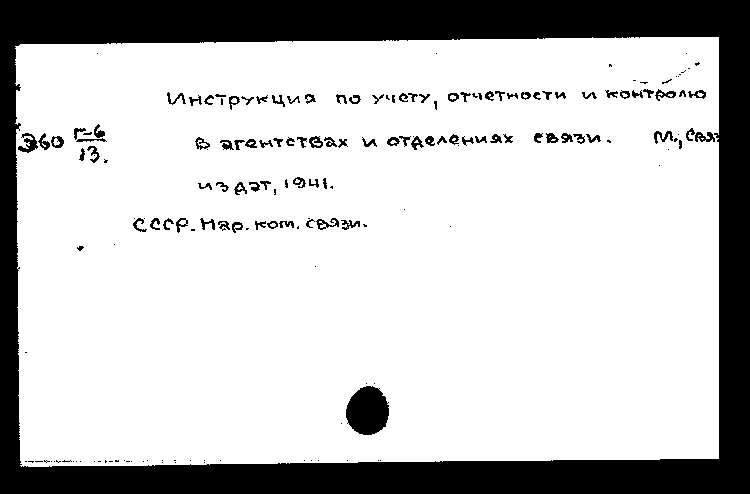 Инструкция по учету, отчетности и контролю
Э60 Г-6/13. в агентствах и отделениях связи. М., Связ
издат, 1941.
СССР. Нар. ком. связи.